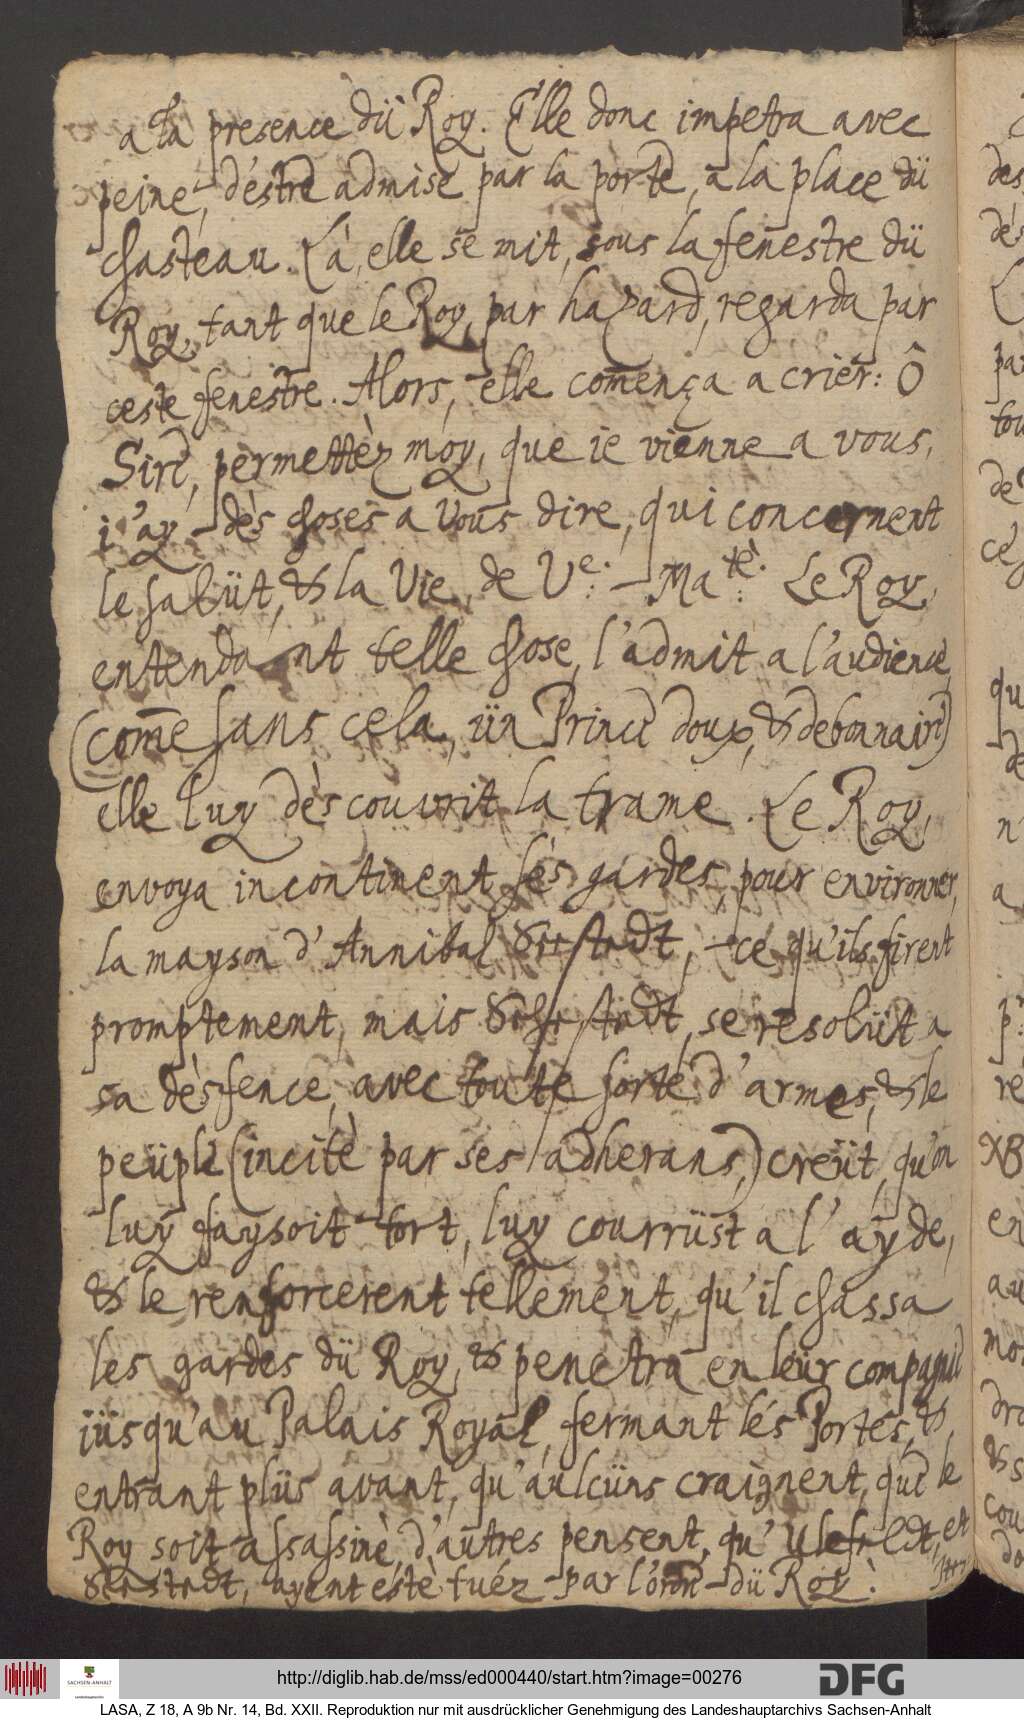 a la presence dü Roy. Elle donc impetra avec
peine, d'estre admise par la porte, a la place dü
chasteau. Là, elle se mit, sous la fenestre dü
Roy, tant que le Roy, par hazard, regarda par
ceste fenestre. Alors, elle comença a crier: Ô
Sire, permettèz moy, que ie vienne a vous,
i'ay dès choses a Vous dire, qui concernent
le salüt, & la Vie, de Ve: Matè: Le Roy,
entendant telle chose, l'admit a l'audience
(come sans cela, ün Prince doux, & debonnaire)
elle luy dèscouvrit la trame. Le Roy,
envoya incontinent ses gardes, pour environner,
la mayson d'Annibal Sehstedt, ce qu'ils firent
promptement, mais Sehestedt, se resolüt a
sa dèsfence, avec toute sorte d'armes, & le
peüple (incitè par ses adherans,) creüt, qu'on
luy faysoit tort, luy courrüst a l'ayde,
& le renforcerent tellement, qu'il chassa
les gardes dü Roy, & penetra en leür compagnie
iüsqu'au Palais Royal, fermant lés Portes, &
entrant plüs avant, qu'aulcüns craignent, que le
Roy soit assassinè, d'autres pensent, qu'Ulefeldt, et
Sehstedt, ayent éstè tuéz par l'ordre dü Roy.
http://diglib.hab.de/mss/ed000440/start.htm?image=00276
SACHSEN-ANHALT
DFG
LASA, Z 18, A 9b Nr. 14, Bd. XXII. Reproduktion nur mit ausdrücklicher Genehmigung des Landeshauptarchivs Sachsen-Anhalt